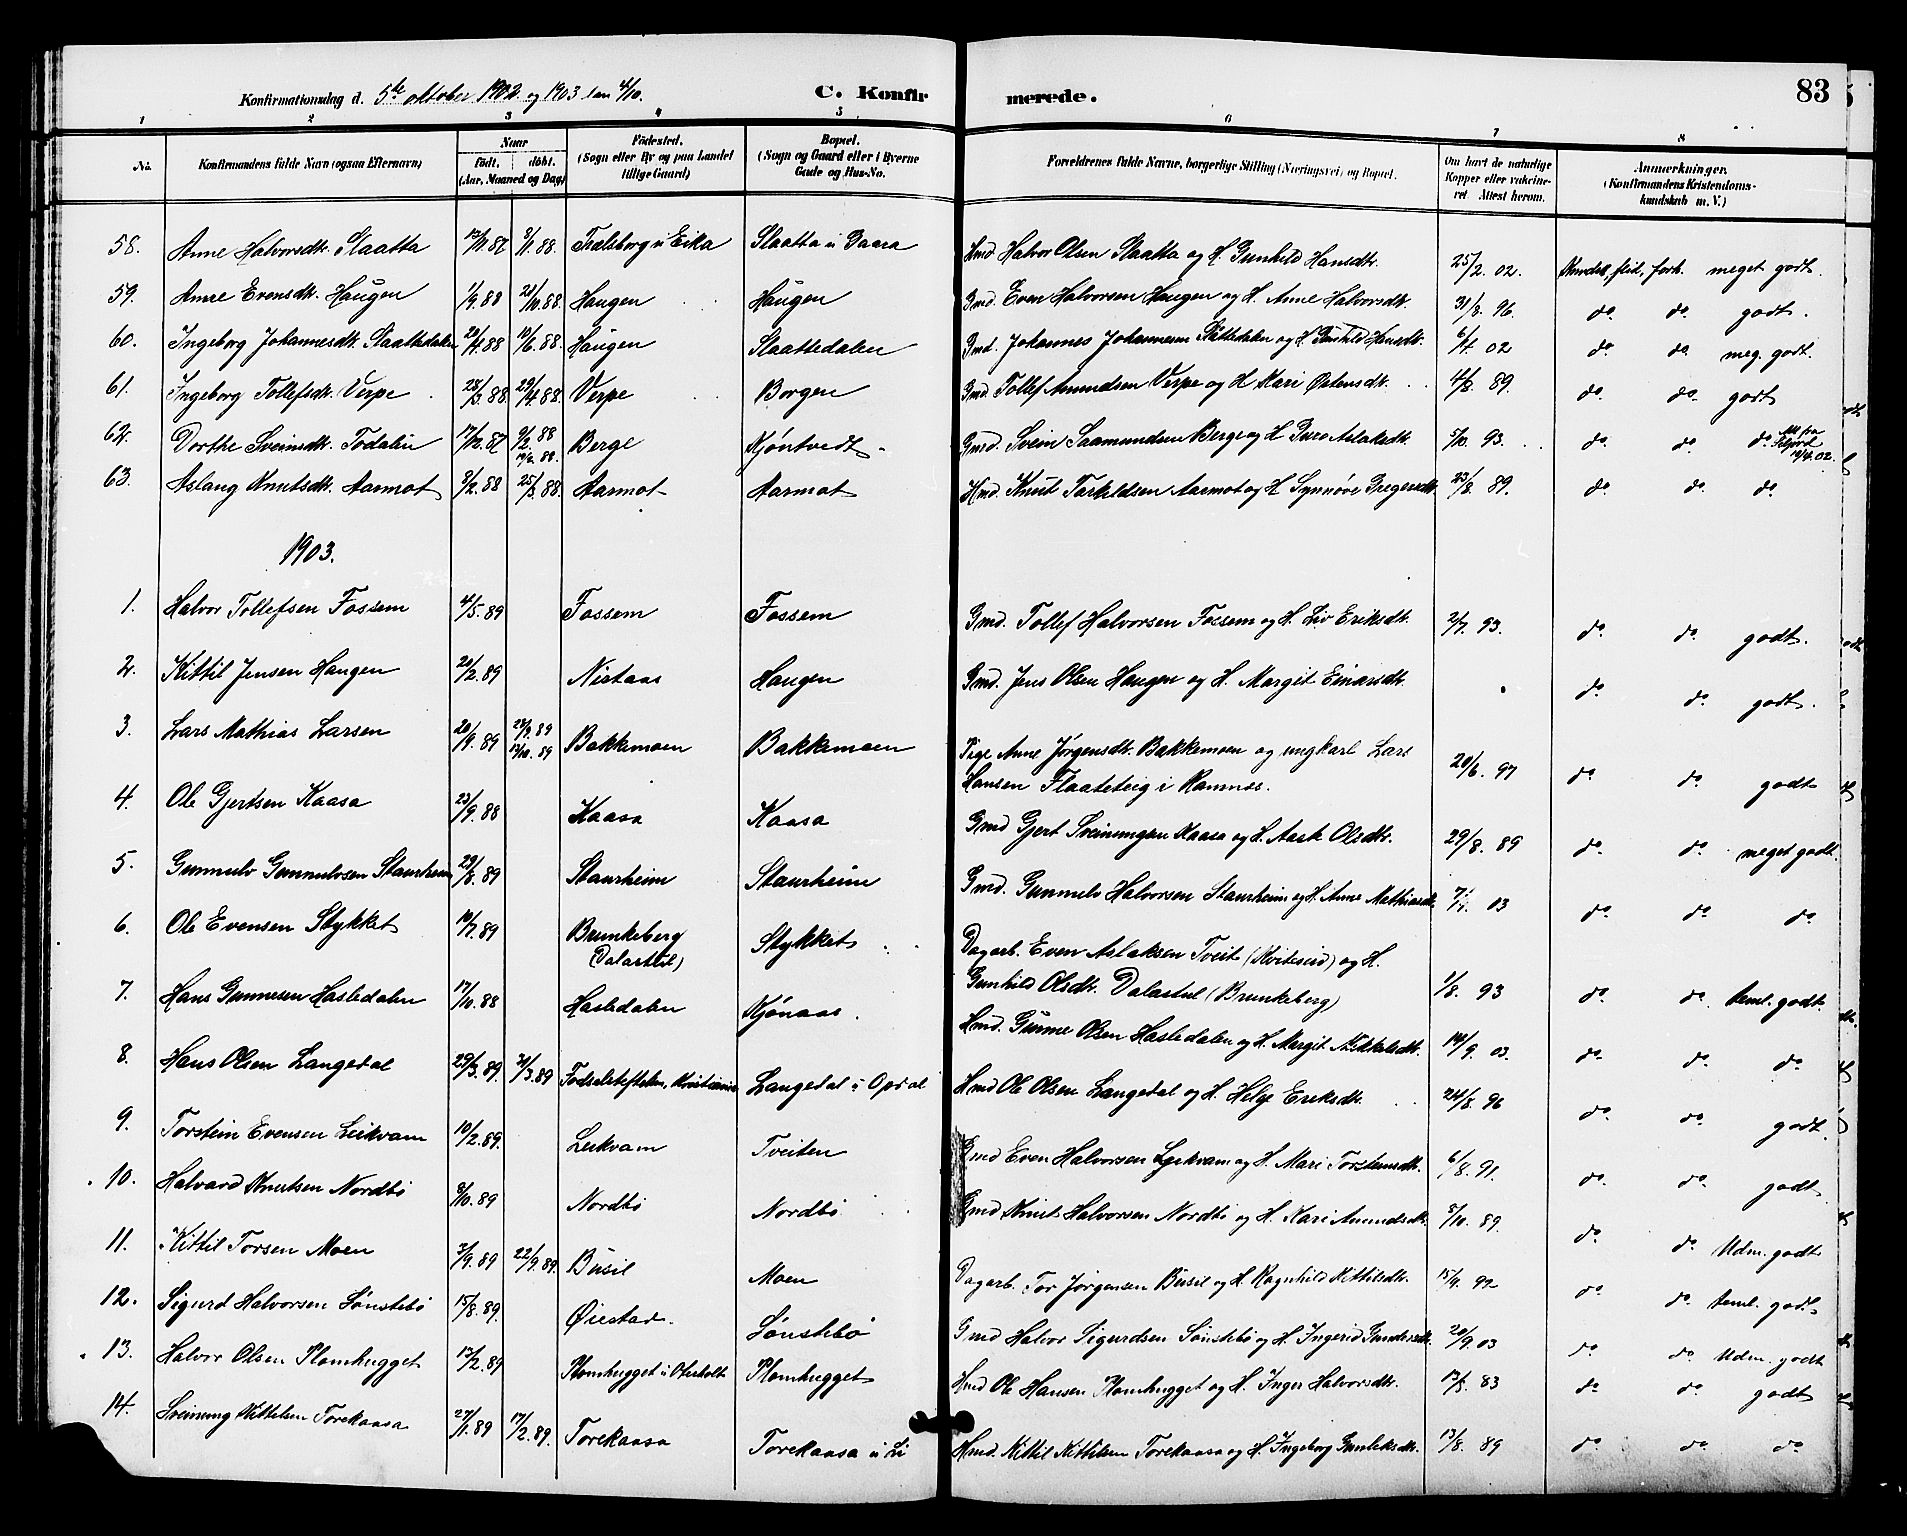 83
Konfirmationsdag d. 5te oktober 1902 og 1903 den 4/10. C. Konfirmerede.
1 2 3 4 5 6 7 8
No. Konfirmandens fulde Navn (ogsaa Efternavn) Naar født, døbt. (Aar, Maaned og Dag) Fødested. (Sogn eller By og paa Landet tillige Gaard) Bopæl. (Sogn og Gaard eller i Byerne Gade og Hus-No. Forældrenes fulde Navne, borgerlige Stilling (Næringsvei) og Bopæl. Om havt de naturlige Kopper eller vakcineret Attest herom. Anmærkninger. (Konfirmandens Kristendomskundskab m. V.)
58. Anne Halvorsdtr. Slaatta 12/11 87 8/1 88. Træleborg u. Eika Slaatta u Gaara Hmd Halvor Olsen Slaatta og H. Gunhild Hansdtr. 25/2. 02. Kundsk, flid, forh. meget godt.
59. Anne Evensdtr. Haugen 1/9. 88 21/10. 88. Haugen Haugen Gmd. Even Halvorsen Haugen og H. Anne Halvorsdtr. 31/8. 96. do. do. godt.
60. Ingeborg Johannesdtr. Slaattedalen 20/4. 88 10/6. 88. Haugen Slaattedalen Gmd. Johannes Johannesen Slåttedalen og H. Gunhild Hansdtr. 6/4. 02 do. do. meg. godt.
61. Ingeborg Tollefsdtr. Verpe 28/3. 88. 29/4. 88. Verpe Borgen Gmd. Tollef Amundsen Verpe og H. Kari Østensdtr. 4/8. 89. do. do. godt
62. Dorthe Sveinsdtr. Todalen 17/12. 87 9/2. 88 Berge Kjøntvedt Gmd. Svein Saamundsen Berge og H. Guro Aslaksdtr. 5/10. 93. do. do. do. Att fra 14/4. 02.
63. Aslaug Knutsdtr. Aarmot 9/2. 88 25/3. 88. Aarmot Aarmot Hmd. Knut Torkildsen Aarmot og H. Synnøve Gregersdtr. 23/8. 89. do. do. do.
1903.
1. Halvor Tollefsen Fossem 4/5. 89 Fossem Fossem Gmd. Tollef Halvorsen Fossem og H. Liv Eriksdtr. 2/7. 93. do. do. godt.
2. Kittil Jensen Haugen 20/2. 89 Nistaas Haugen Gmd. Jens Olsen Haugen og H. Margit Einarsdtr. do. do. godt.
3. Lars Mathias Larsen 20/9. 89 29/9. 89 13/10. 89 Bakkemoen Bakkemoen Pige Anne Jørgensdtr. Bakkemoen og ungkarl Lars
Hansen Flaateteig i Ramnæs. 20/6. 97 do. do. godt
4. Ole Gjertsen Kaasa 23/9. 88 Kaasa Kaasa Gmd Gjert Sveinungsen Kaasa og H. Aase Olsdtr. 29/8. 89 do. do. meget godt.
5. Gunnulv Gunnulvsen Staurheim 29/8. 89 Staurheim Staurheim Gmd. Gunnulv Halvorsen Staurheim og H. Anne Mathiasdtr. 7/1. 03 do. do. do.
6. Ole Evensen Stykket 10/7. 89 Brunkeberg (Dalastul) Stykket Dagarb. Even Aslaksen Tveit (Kviteseid) og H.
Gunhild Olsdtr. Dalastul (Brunkeberg) 1/8. 93 do. do. teml. godt
7. Hans Gunnesen Hasledalen 17/10. 88 Hasledalen Kjønaas. Hmd. Gunne Olsen Hasledalen og H. Margit Mikkelsdtr. 14/9. 03. do. do. do.
8. Hans Olsen Langedal 29/3. 89. 31/3. 89 Fødselsstiftelsen, Kristiania Langedal u Opdal Hmd Ole Olsen Langedal og H. Helge Eriksdtr. 24/8. 96 do. do. godt.
9. Torstein Evensen Leikvam 10/2. 89. Leikvam Tveiten Gmd Even Halvorsen Leikvam og H. Mari Torsteinsdtr. 6/8. 91. do. do. godt
10. Halvard Knutsen Nordbø 8/10. 89 Nordbø Nordbø Gmd Knut Halvorsen Nordbø og H. Kari Amundsdtr. 8/10. 89. do. do. Udm. godt
11. Kittil Torsen Moen 3/9. 89 22/9. 89. Busil Moen Dagarb. Tor Jørgensen Busil og H. Ragnhild Kittilsdtr. 15/9. 92 do. do. teml. godt
12. Sigurd Halvorsen Sønstebø 15/8. 89. Øiestad. Sønstebø Gmd Halvor Sigurdsen Sønstebø og H. Ingerid Gundersdtr. 20/9. 03 do. do. Udm. godt
13. Halvor Olsen Plomhugget 13/2. 89 Plomhugget u. Oterholt Plomhugget Hmd Ole Hansen Plomhugget og H. Inger Halvorsdtr. 83 do. do. godt
14. Sveinung Kittelsen Torekaasa 27/1. 89 17/2. 89. Torekaasa Torekaasa u Li Hmd. Kittil Kittilsen Torekaasa og H. Ingeborg Gunleiksdtr. 13/8. 89 do. do. do.